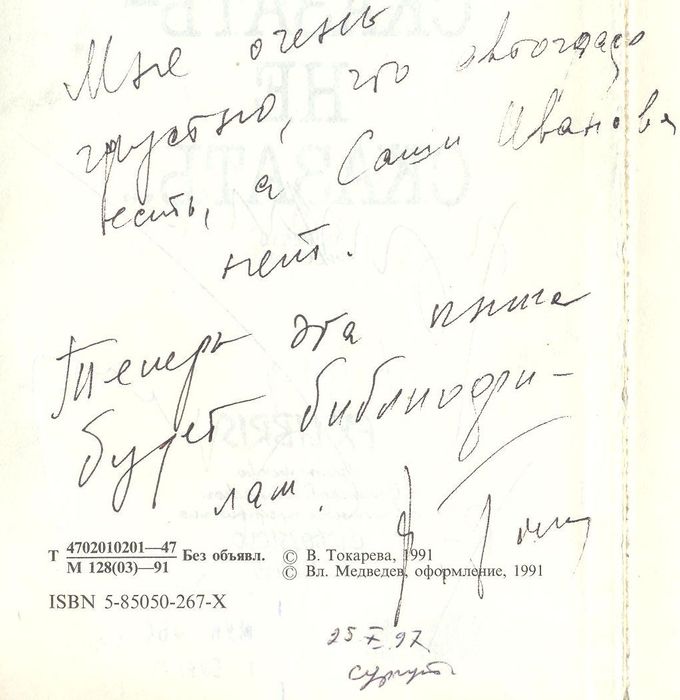 Мне очень
грустно, что автограф
есть, а Саши Иванова
нет.
Теперь эта книга
будет библиофи-
лам.
Т 4702010201—47 Без объявл.
М 128(03)—91
© В. Токарева, 1991
© Вл. Медведев, оформление, 1991
ISBN 5-85050-267-X
25 X 97
Сургут